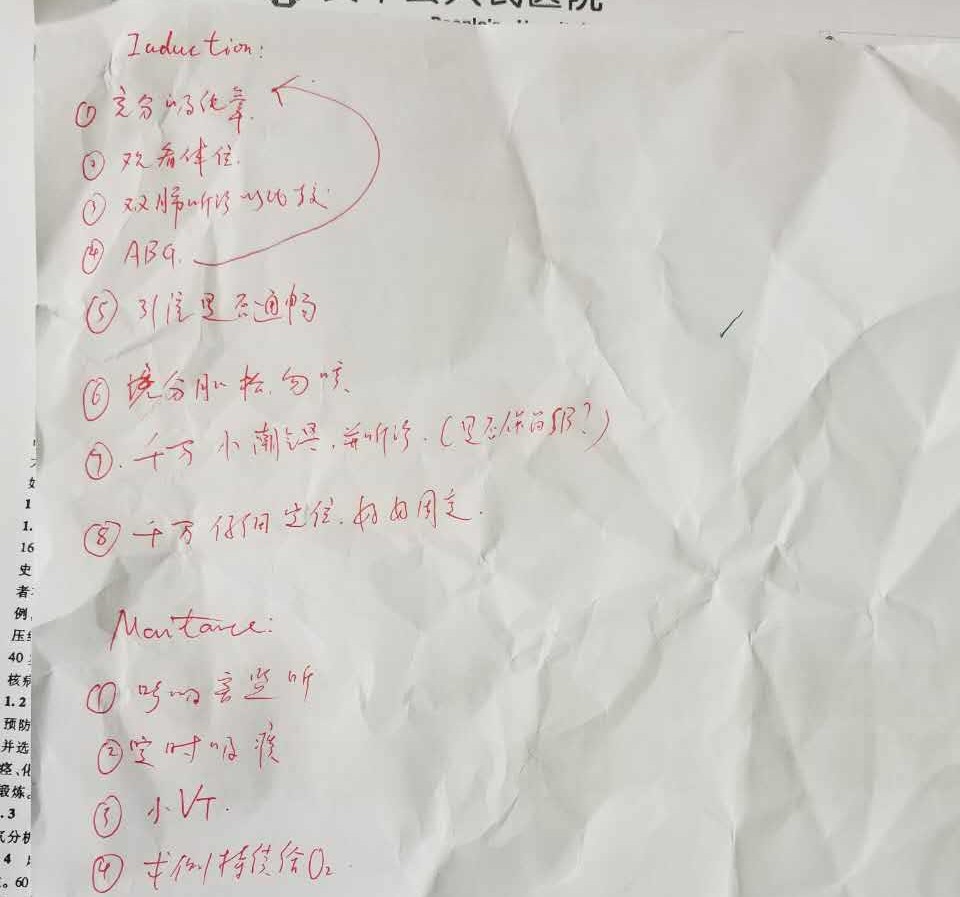 人民医院
Induction:
① 充分吸化痰.
② 观看体位.
③ 双肺听诊 以比较
④ ABG.
⑤ 引流是否通畅
⑥ 充分肌松.勿咳.
⑦. 千万小潮气量.并听诊.(是否保留SB?)
⑧ 千万仔细定位.好好固定.
Maintance:
① 呼吸音监听
② 定时吸痰
③ 小VT.
④ 持续给O₂
1
1.
16
史
者
例,
压
40
核病
1.2
预防
并选
痉、化
锻炼。
.3
气分析
4
。60